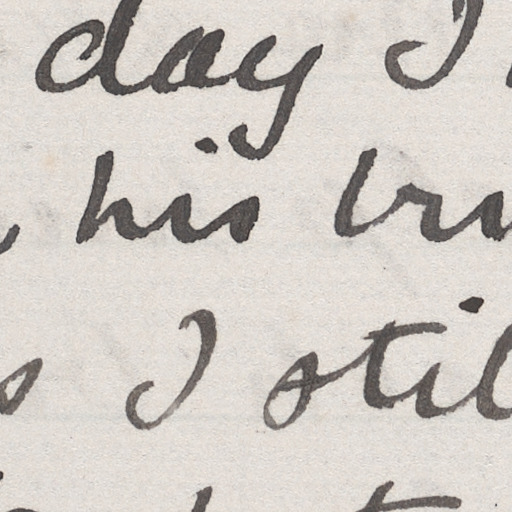 day I
his bru
s I stil